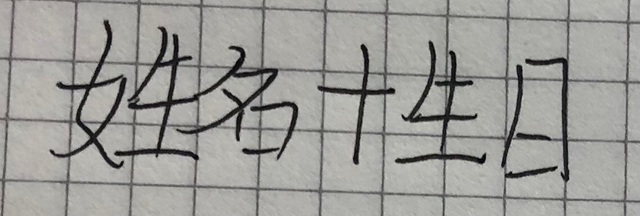 姓名+生日